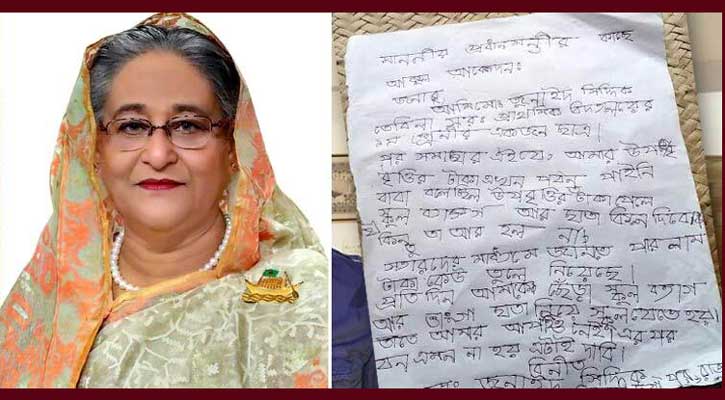 মাননীয় প্রধানমন্ত্রীর কাছে
আকুল আবেদন:
জনাব
আমি মোঃ জুনাইদ সিদ্দিক
সরঃ প্রাথমিক বিদ্যালয়ের
শ্রেনীর একজন ছাত্র।
পর সমাচার এইযে, আমার উপবৃ
ত্তির টাকা এখন পর্যন্ত পাইনি
বাবা বলেছিল উপবৃত্তির টাকা পেলে
স্কুল ব্যাগ আর ছাতা কিনে দিবে
কিন্তু তা আর হল না।
সারদের মাধ্যমে জানতে পারলাম
টাকা কেউ তুলে নিয়েছে।
প্রতি দিন আমাকে ছেঁড়া স্কুল ব্যাগ
আর ভাংগা ছাতা নিয়ে স্কুল যেতে হয়।
তাতে আমার আপত্তি নাই এর পর
যেন এমন না হয় এটাই দাবি।
বিনীত
সিদ্দিক